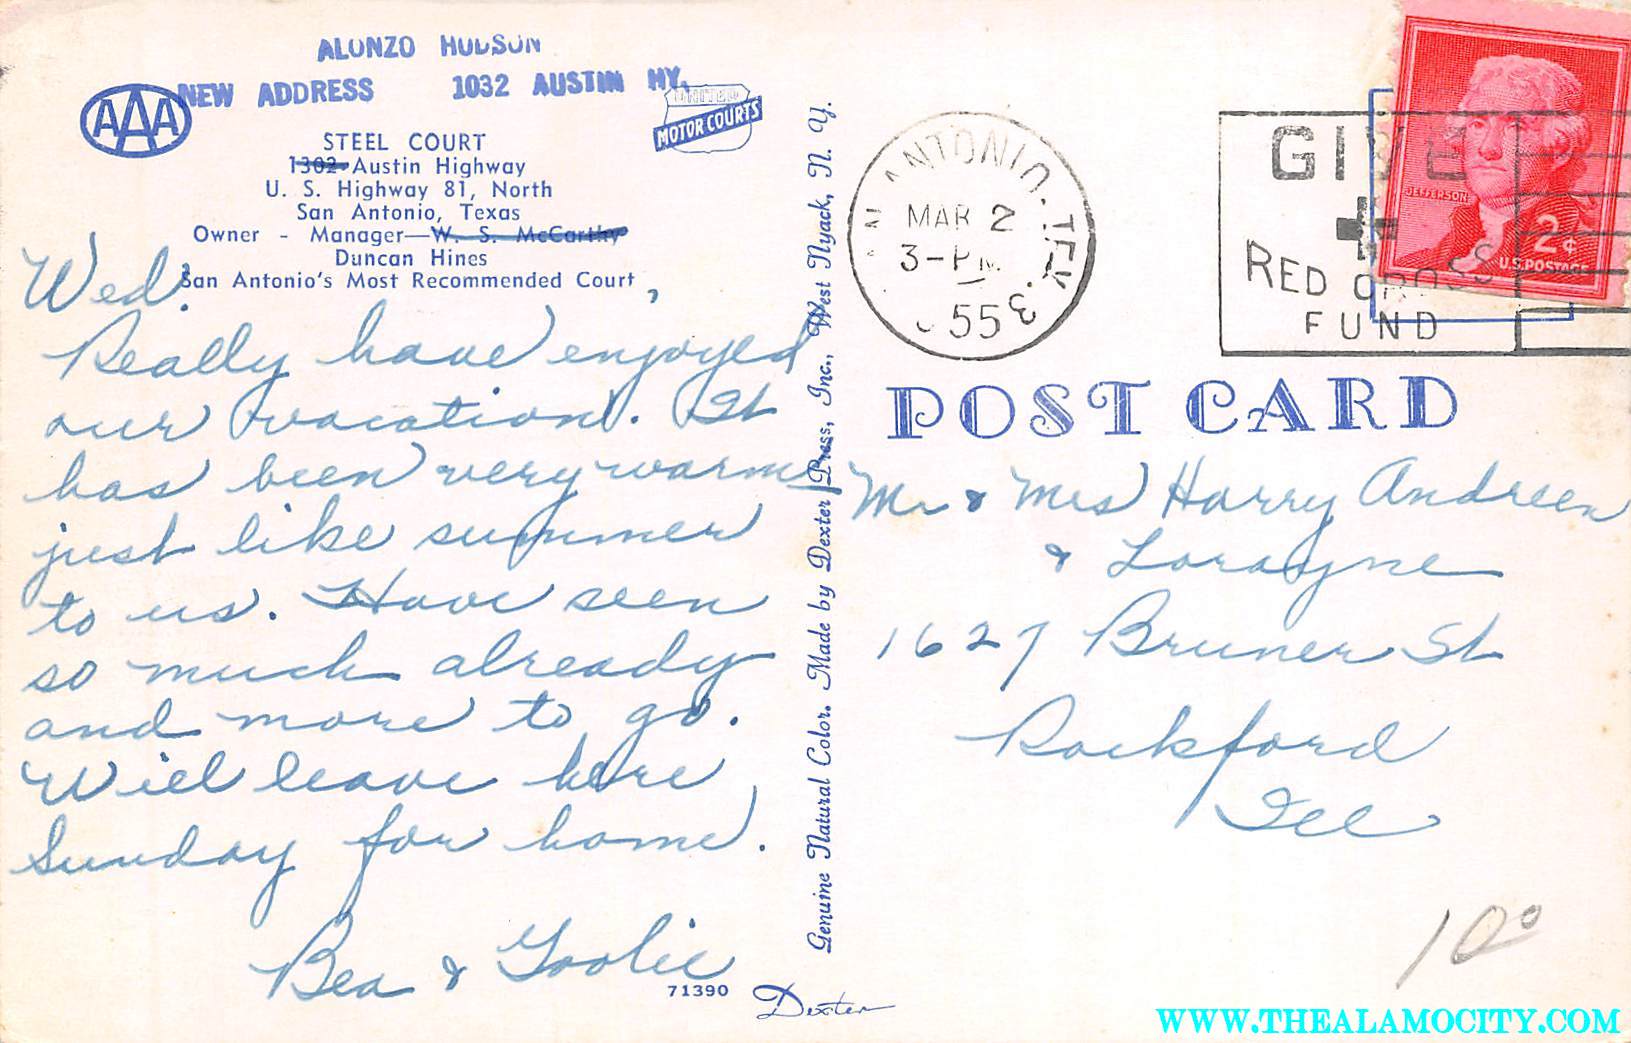 ALONZO HUDSON
NEW ADDRESS 1032 AUSTIN HY.
AAA
UNITED
MOTOR COURTS
STEEL COURT
1302 Austin Highway
U. S. Highway 81, North
San Antonio, Texas
Owner - Manager—W. S. McCarthy
Duncan Hines
San Antonio's Most Recommended Court
Wed.
Really have enjoyed
our vacation. It
has been very warm
just like summer
to us. Have seen
so much already
and more to go.
Will leave here
Sunday for home.
Bea & Goolie
71390
Dexter
Genuine Natural Color. Made by Dexter Press, Inc., West Nyack, N. Y.
AN ANTONIO, TEX. 3
MAR 2
3-PM
55
GIVE
RED CROSS
FUND
JEFFERSON
2¢
U.S. POSTAGE
POST CARD
Mr & Mrs Harry Andreen
& Lorayne
1627 Bruner St
Rockford
Ill
10⁰
WWW.THEALAMOCITY.COM